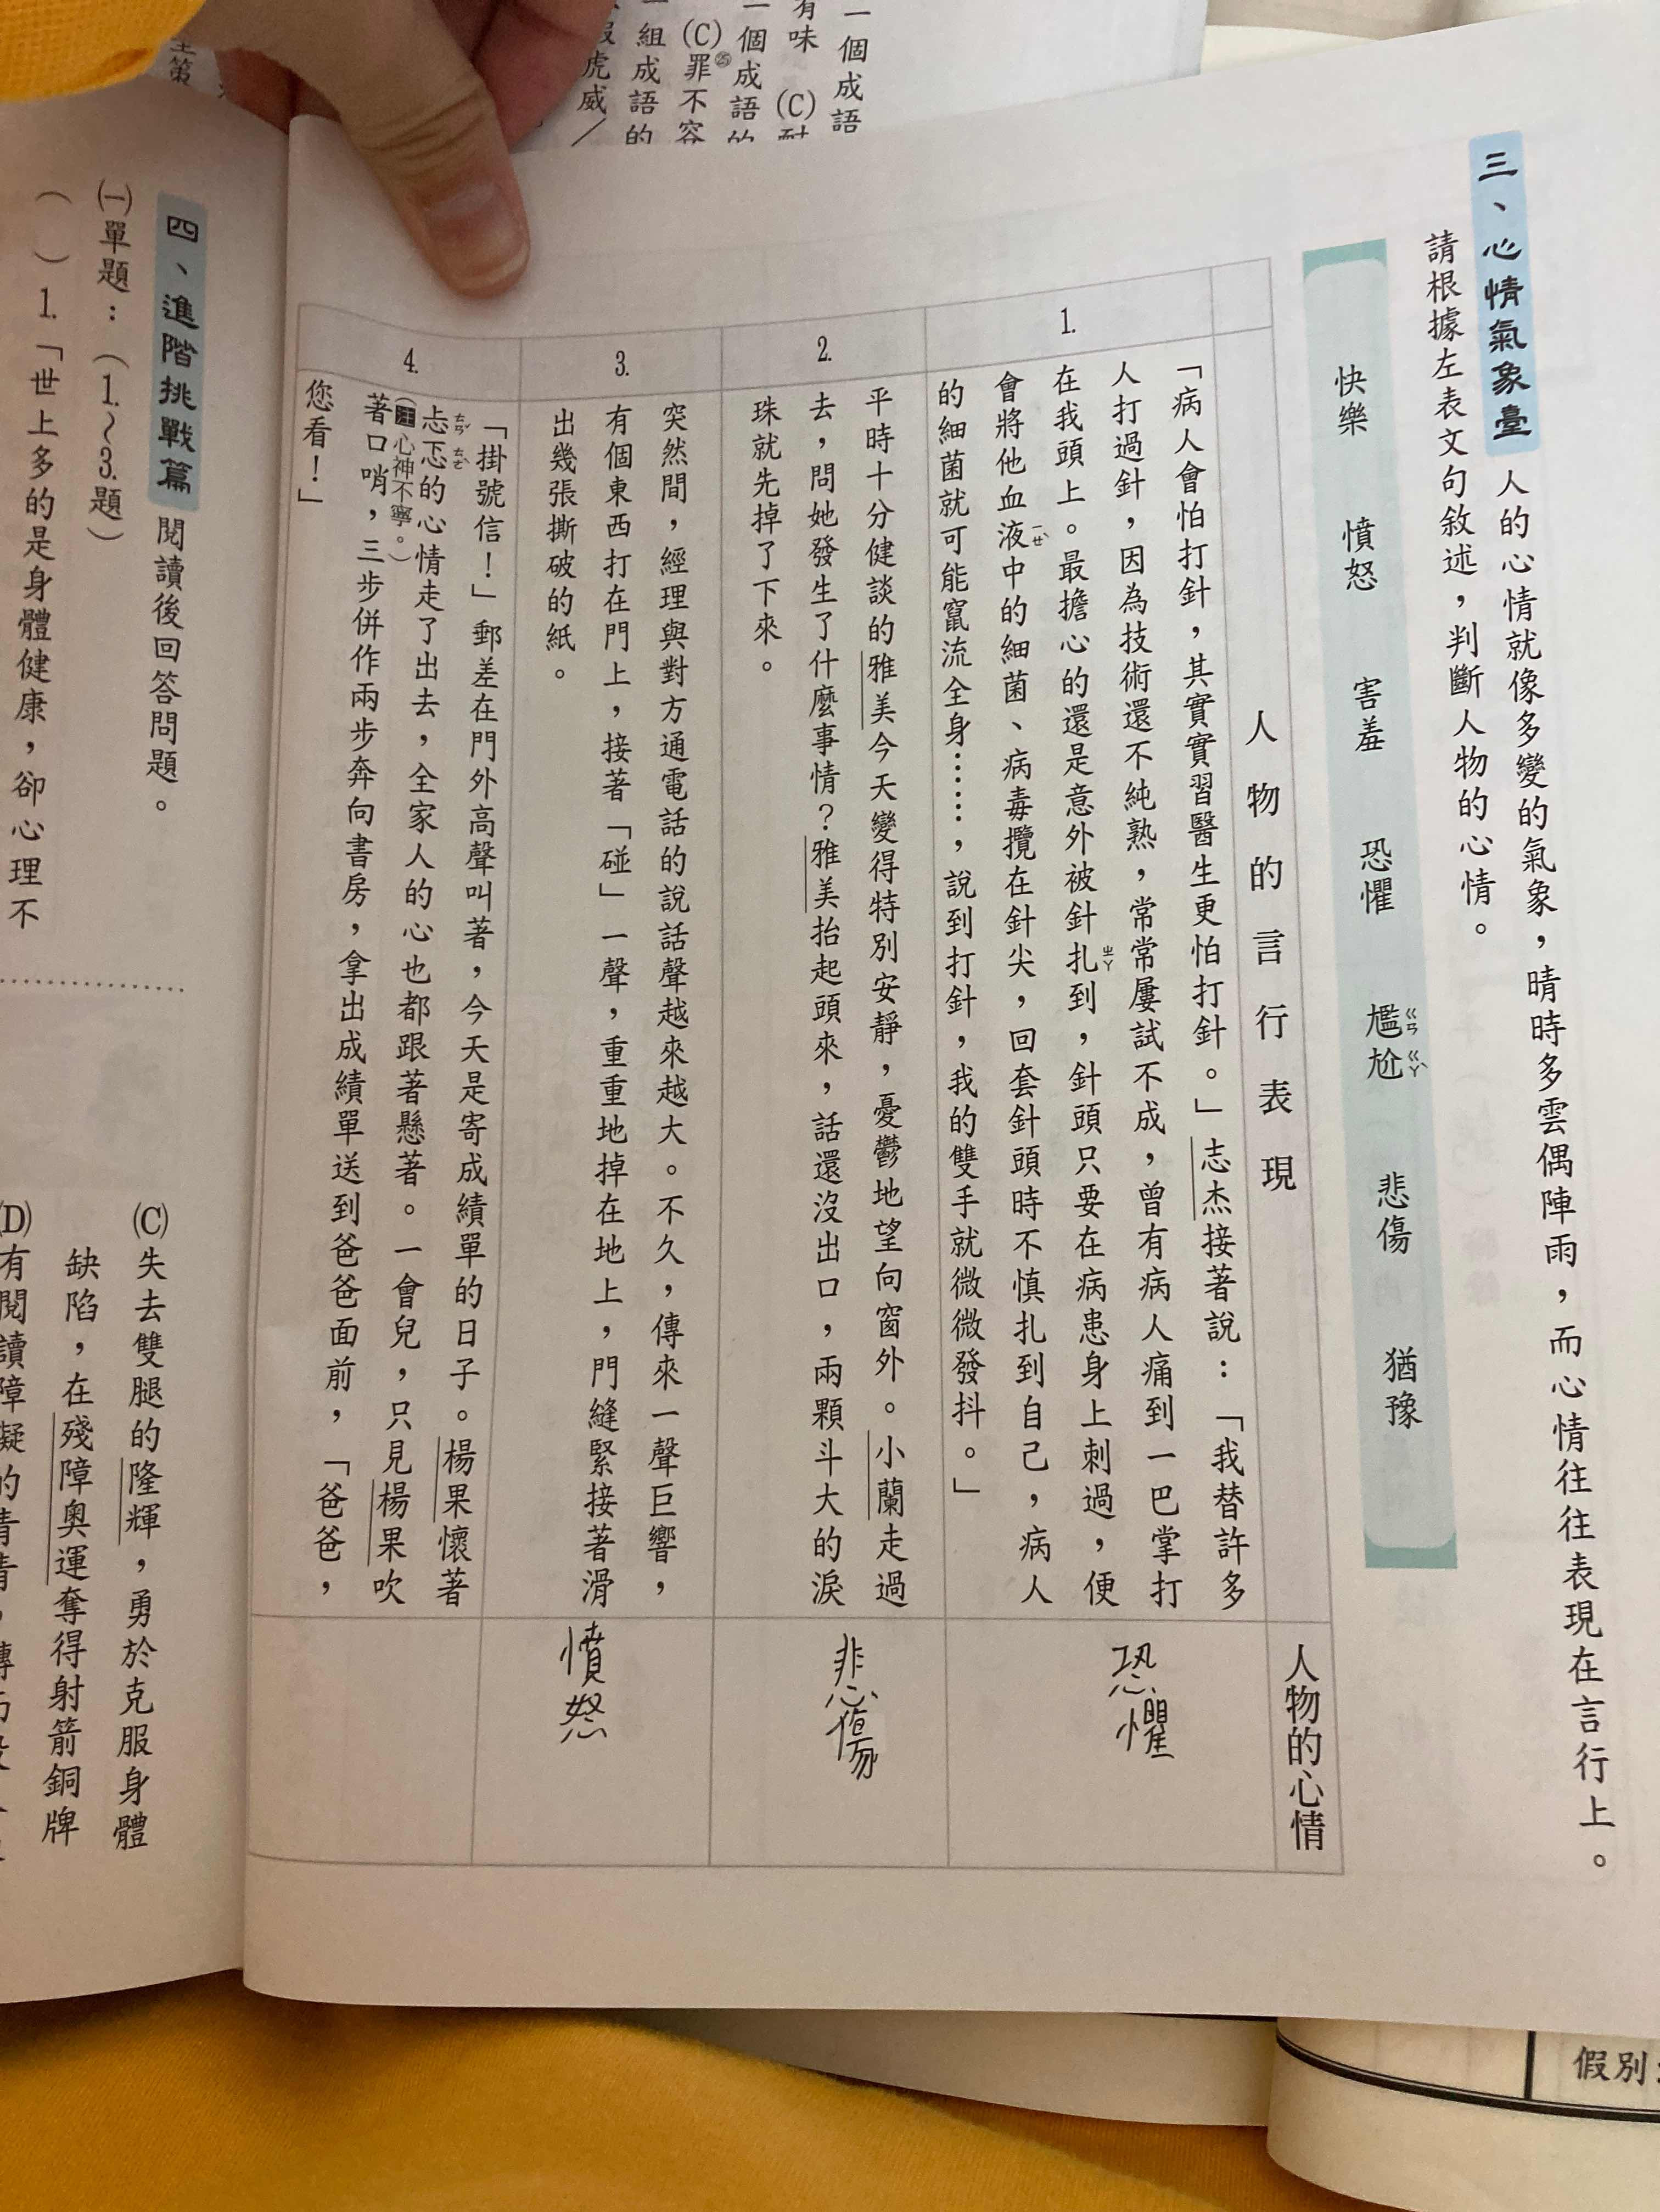 一個成語
有味 (C)耐
一個成語的
(C)罪不容
一組成語的
假虎威／
三、心情氣象臺 人的心情就像多變的氣象，晴時多雲偶陣雨，而心情往往表現在言行上。
請根據左表文句敘述，判斷人物的心情。
快樂 憤怒 害羞 恐懼 尷尬 悲傷 猶豫
ㄍㄢ ㄍㄚˋ
人物的言行表現 人物的心情
1.
「病人會怕打針，其實實習醫生更怕打針。」志杰接著說：「我替許多
人打過針，因為技術還不純熟，常常屢試不成，曾有病人痛到一巴掌打
在我頭上。最擔心的還是意外被針扎到，針頭只要在病患身上刺過，便
ㄓㄚ
會將他血液中的細菌、病毒攬在針尖，回套針頭時不慎扎到自己，病人
ㄧㄝˋ
的細菌就可能竄流全身……，說到打針，我的雙手就微微發抖。」
恐懼
2.
平時十分健談的雅美今天變得特別安靜，憂鬱地望向窗外。小蘭走過
去，問她發生了什麼事情？雅美抬起頭來，話還沒出口，兩顆斗大的淚
珠就先掉了下來。
悲傷
3.
突然間，經理與對方通電話的說話聲越來越大。不久，傳來一聲巨響，
有個東西打在門上，接著「碰」一聲，重重地掉在地上，門縫緊接著滑
出幾張撕破的紙。
憤怒
4.
「掛號信！」郵差在門外高聲叫著，今天是寄成績單的日子。楊果懷著
忐忑的心情走了出去，全家人的心也都跟著懸著。一會兒，只見楊果吹
ㄊㄢˇ ㄊㄜˋ
(註心神不寧。)
著口哨，三步併作兩步奔向書房，拿出成績單送到爸爸面前，「爸爸，
您看！」
四、進階挑戰篇 閱讀後回答問題。
㈠單題：（1.～3.題）
（ ）1.「世上多的是身體健康，卻心理不
(C)失去雙腿的隆輝，勇於克服身體
缺陷，在殘障奧運奪得射箭銅牌
(D)有閱讀障礙的
假別